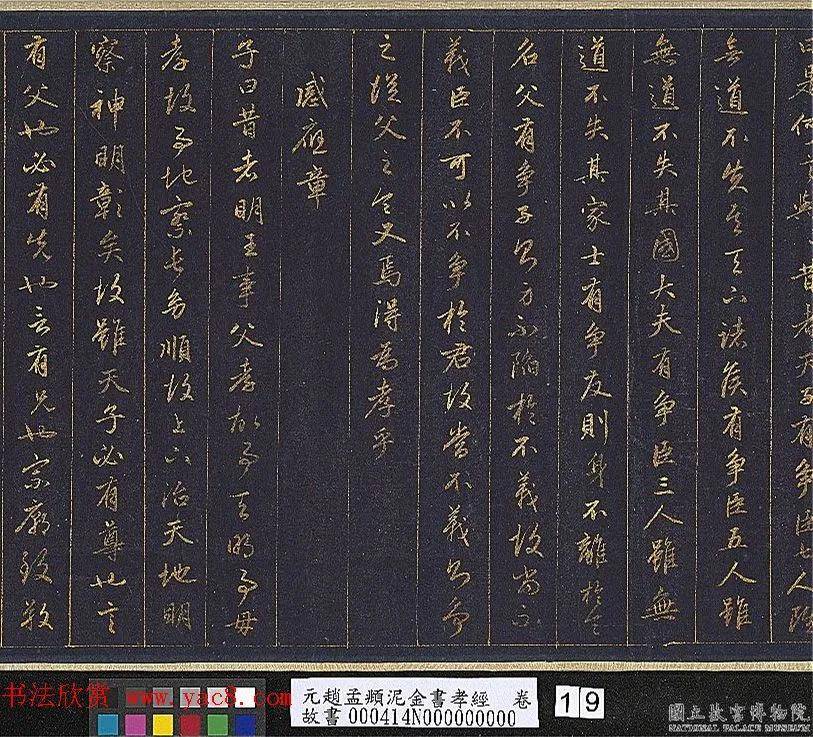 曰是何言與昔者天子有爭臣七人雖
無道不失其天下諸侯有爭臣五人雖
無道不失其國大夫有爭臣三人雖無
道不失其家士有爭友則身不離於令
名父有爭子則身不陷於不義故當不
義臣不可以不爭於君故當不義則爭
之從父之令又焉得為孝乎
感應章
子曰昔者明王事父孝故事天明事母
孝故事地察長幼順故上下治天地明
察神明彰矣故雖天子必有尊也言
有父也必有先也言有兄也宗廟致敬
书法欣赏 www.yac8.com
元趙孟頫泥金書孝經 卷
故書 000414N000000000
19
國立故宮博物院
NATIONAL PALACE MUSEUM